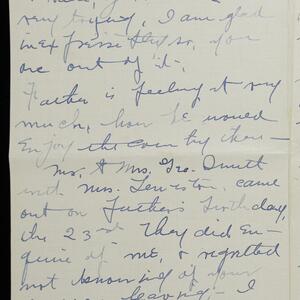 very trying, I am glad
inexpressibly so, you
are out of it.
Father is feeling it very
much, how he would
Enjoy the country there —
Mr. & Mrs. Geo.
with Mrs. Lewiston, came
out on Father's birthday,
the 23rd They did En-
quire of me, & regretted
not knowing of your
leaving — I